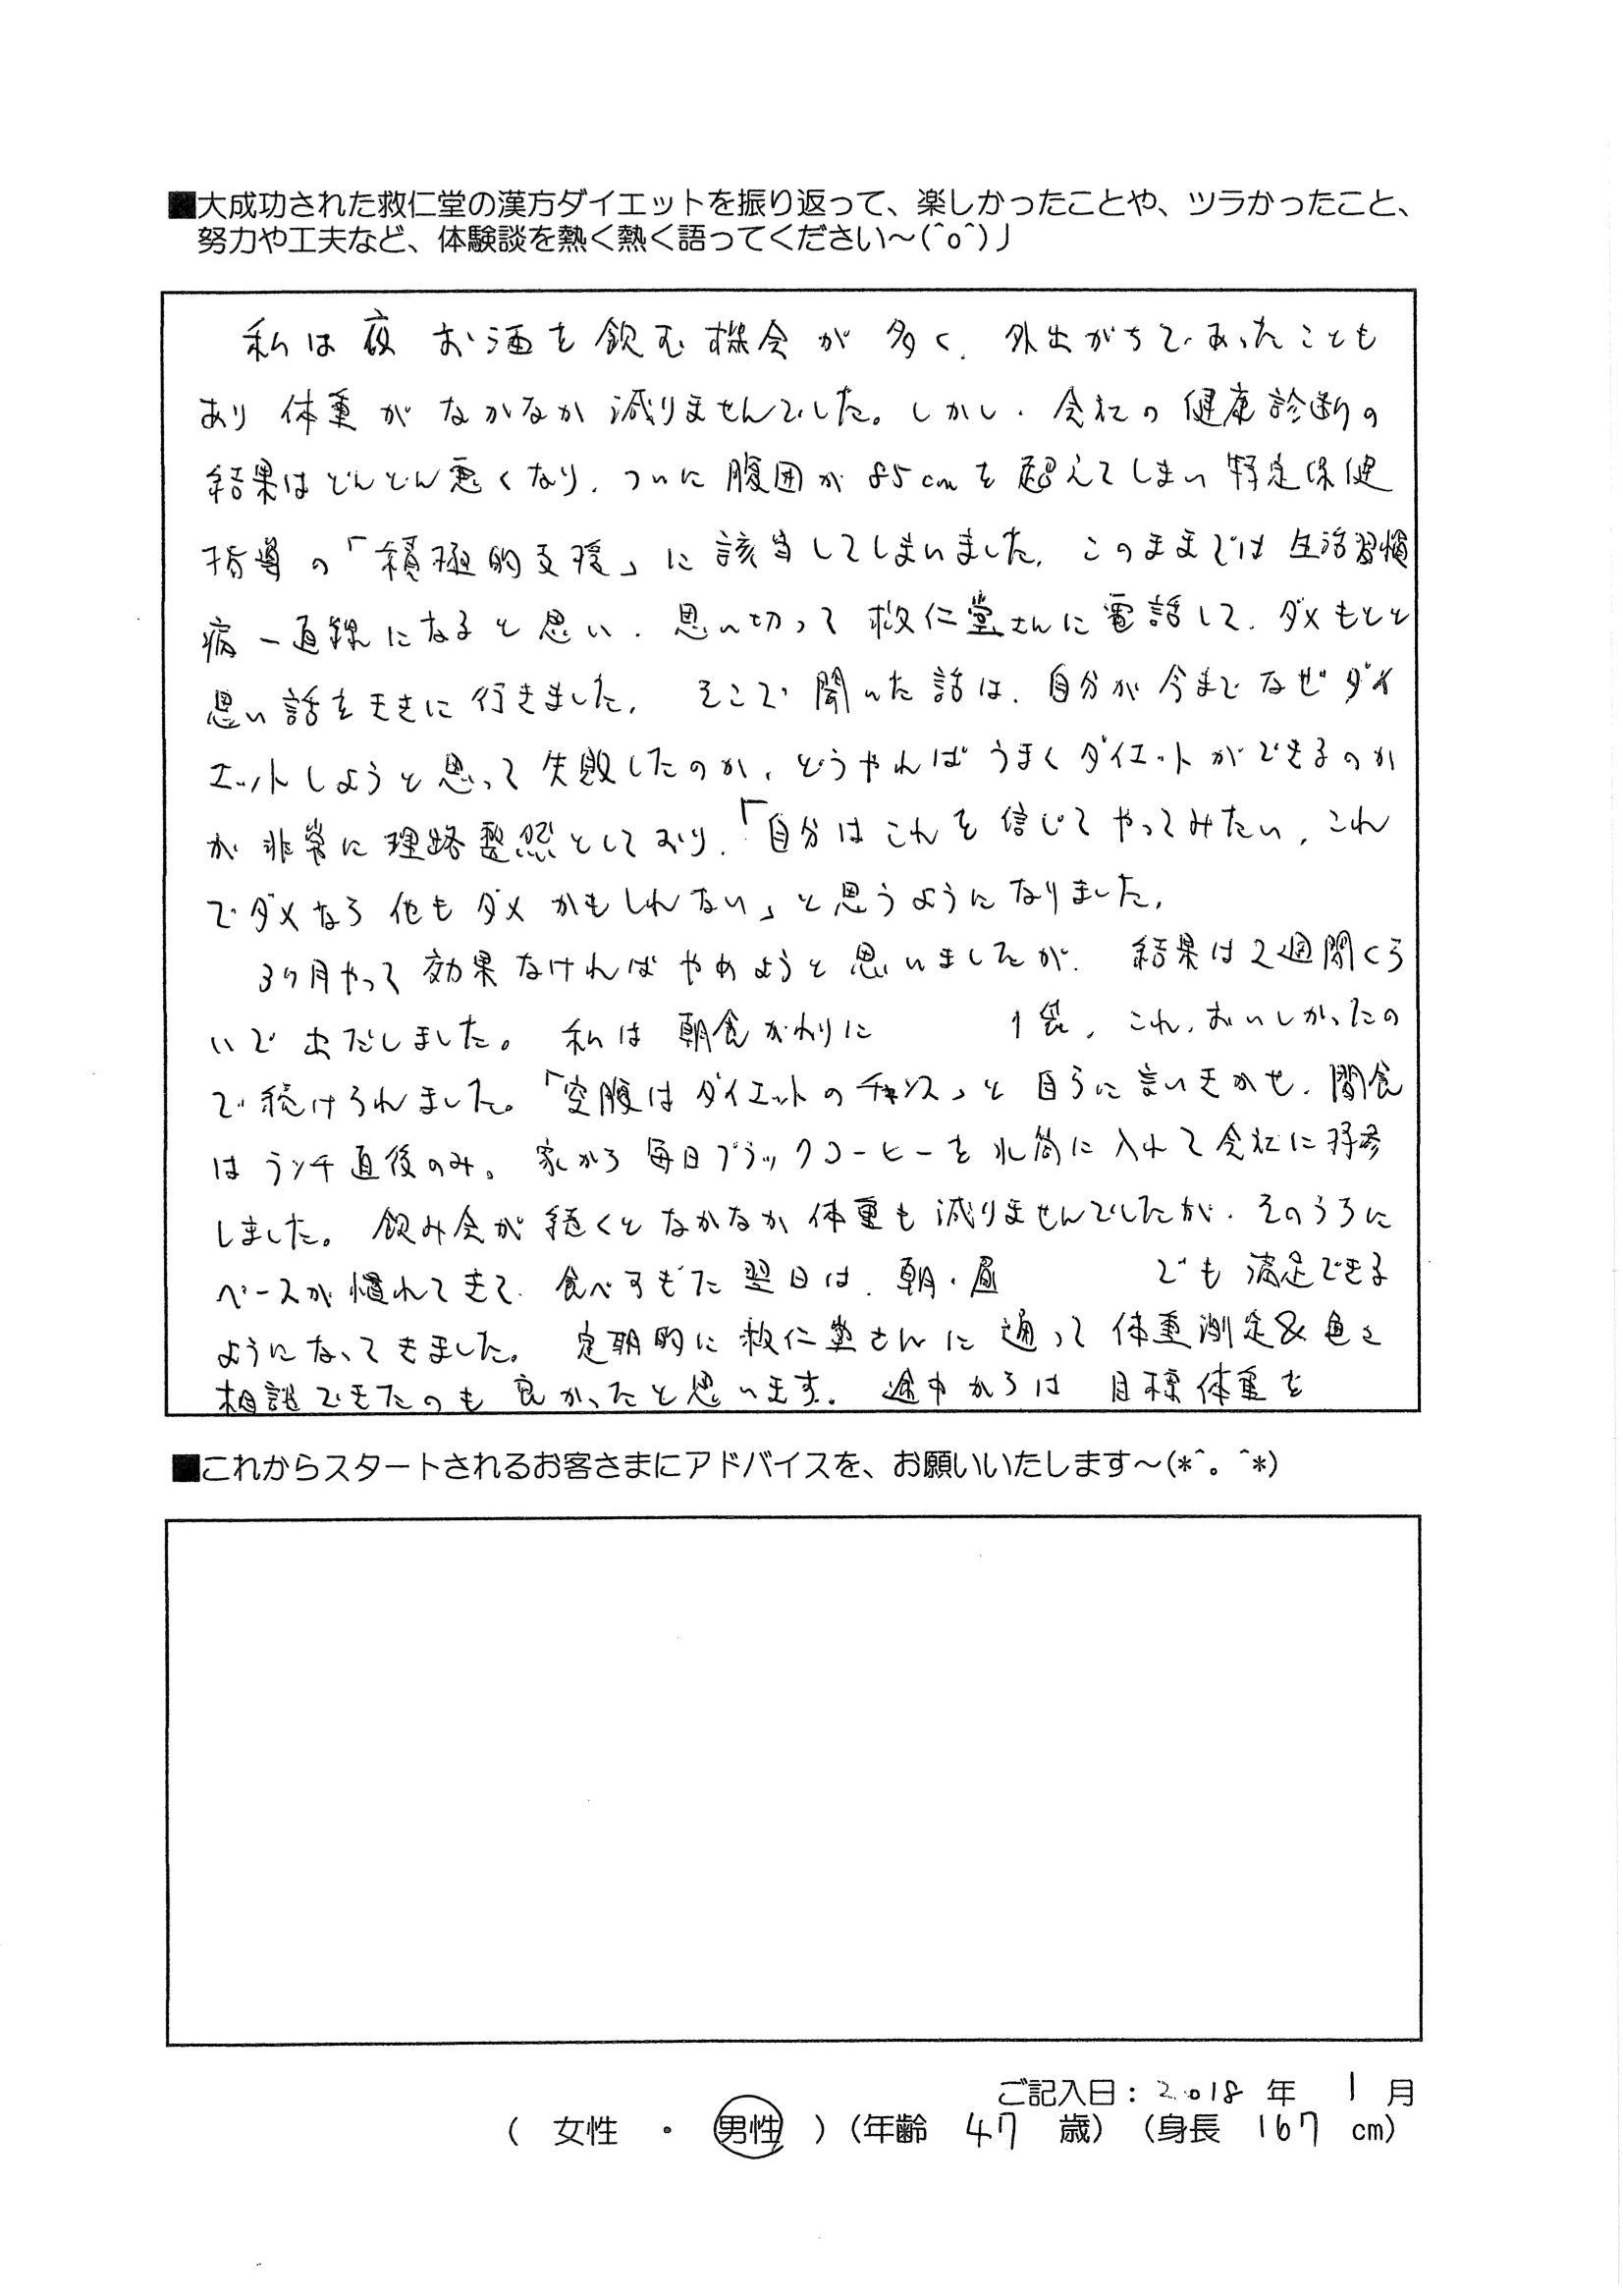 ■大成功された救仁堂の漢方ダイエットを振り返って、楽しかったことや、ツラかったこと、
努力や工夫など、体験談を熱く熱く語ってください～(^o^)丿
私は夜お酒を飲む機会が多く、外出がちであったことも
あり体重がなかなか減りませんでした。しかし、会社の健康診断の
結果はどんどん悪くなり、ついに腹囲が85cmを超えてしまい特定保健
指導の「積極的支援」に該当してしまいました。このままでは生活習慣
病一直線になると思い、思い切って救仁堂さんに電話して、ダメもとと
思い話をききに行きました。そこで聞いた話は、自分が今までなぜダイ
エットしようと思って失敗したのか、どうやればうまくダイエットができるのか
が非常に理路整然としており、「自分はこれを信じてやってみたい、これ
でダメなら他もダメかもしれない」と思うようになりました。
3ヶ月やって効果なければやめようと思いましたが、結果は2週間くら
いで出だしました。私は朝食がわりに 1袋、これ、おいしかったの
で続けられました。「空腹はダイエットのチャンス」と自らに言いきかせ、間食
はランチ直後のみ。家から毎日ブラックコーヒーを水筒に入れて会社に持参
しました。飲み会が続くとなかなか体重も減りませんでしたが、そのうちに
ペースが慣れてきて、食べすぎた翌日は、朝・昼 でも満足できる
ようになってきました。定期的に救仁堂さんに通って体重測定&色々
相談できたのも良かったと思います。途中からは目標体重を
■これからスタートされるお客さまにアドバイスを、お願いいたします～(*^。^*)
ご記入日：2018年 1月
( 女性 ・ 男性 ) (年齢 47 歳) (身長 167 cm)